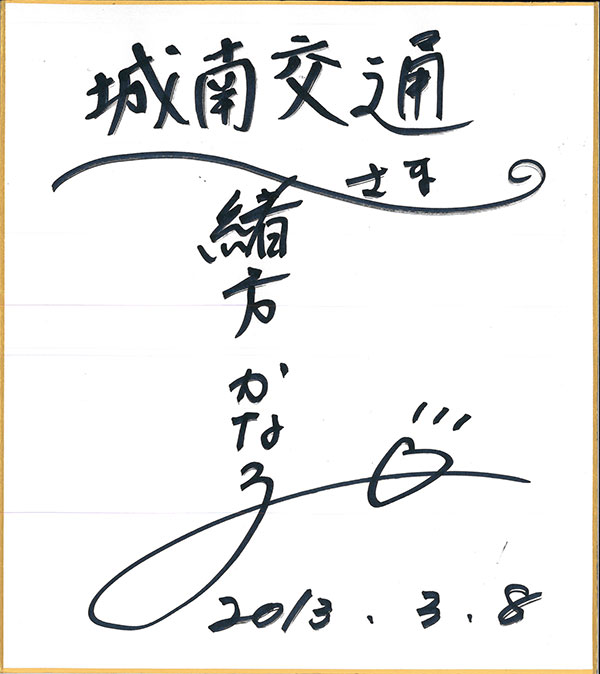 城南交通
さま
緒方
かなろ
2013.3.8